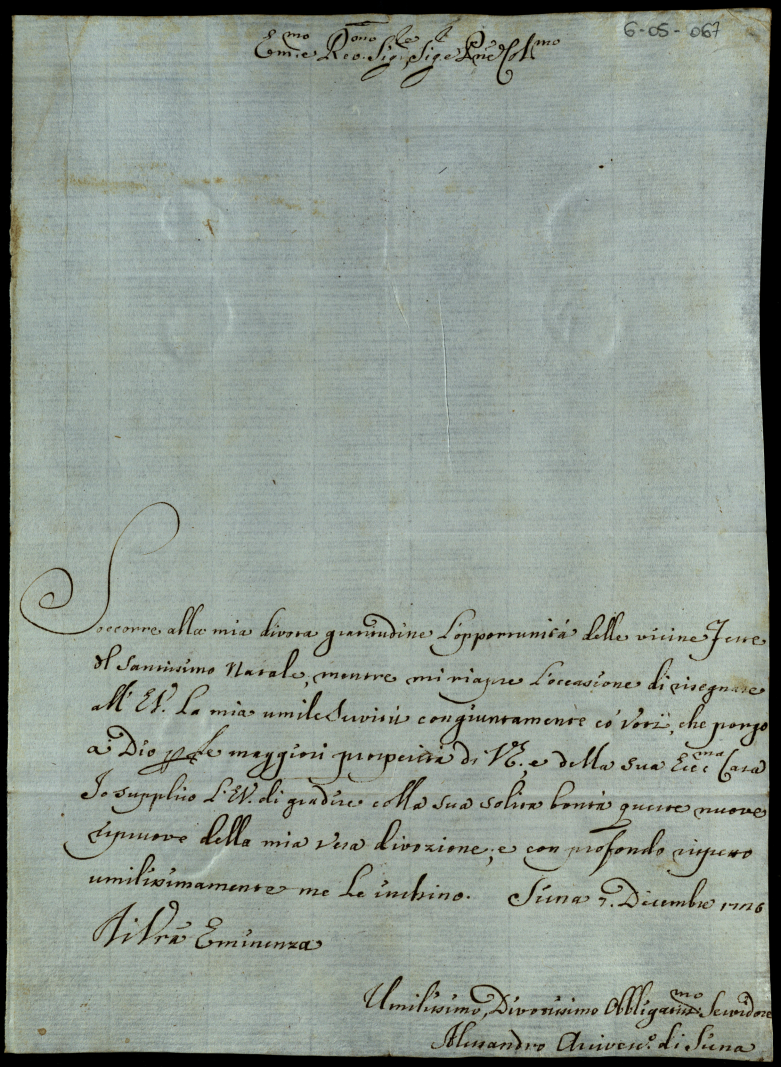 6-05-067
Em.mo e Reu.mo Sig.re Sig.re e Pne Col.mo
Soccorre alla mia divota gratitudine l'opportunità delle vicine Feste
del Santissimo Natale, mentre mi riapre l'occasione di risegnare
all' EV. la mia umile Servitù congiuntamente co' Voti, che porgo
a Dio p le maggiori prosperità di VE, e della sua Ecc.ma Casa
Io supplico L'EV. di gradire colla sua solita bontà queste nuove
ripruove della mia vera divozione, e con profondo rispetto
umilissimamente me le inchino. Siena 7. Dicembre
Di Vrã Eminenza
Umilissimo, Divotissimo Obbligatmo Servidore
Alessandro Arcivesc.o di Siena